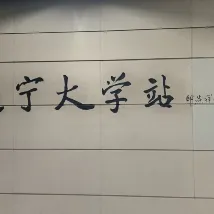 宁大学站